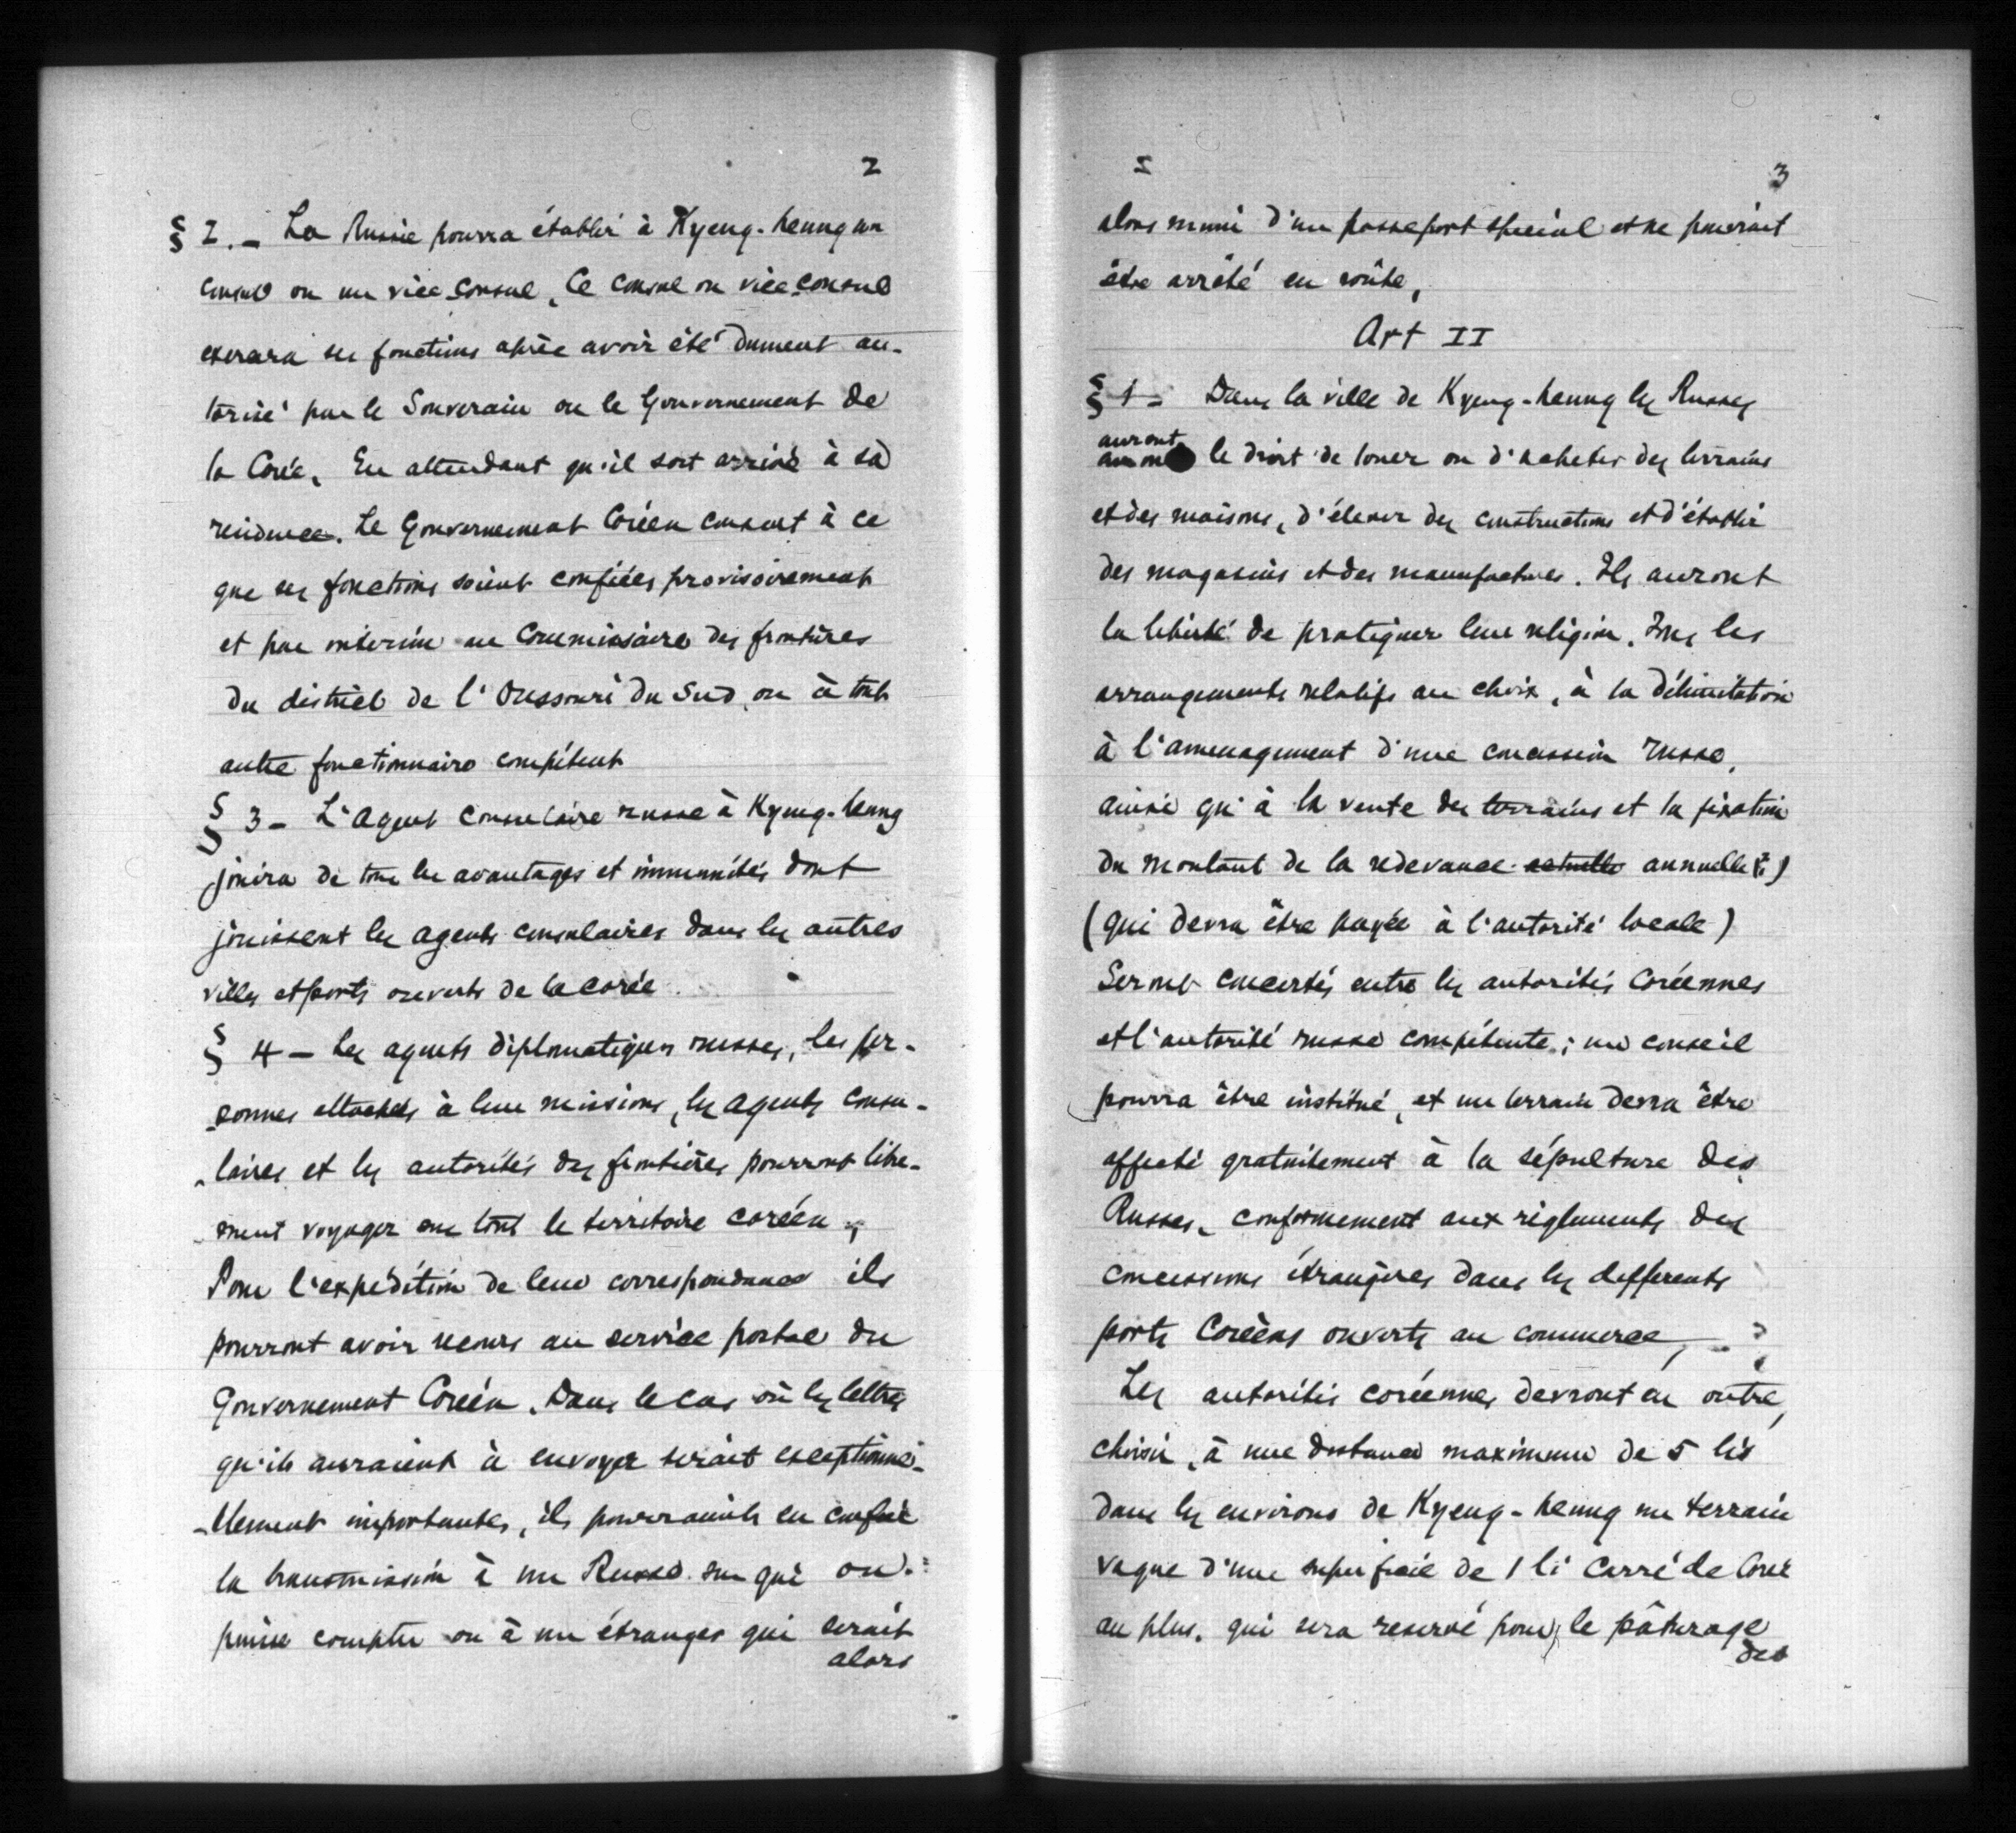 2
§ 2. – La Russie pourra établir à Kyeng-heung un
consul ou un vice-consul. Ce consul ou vice-consul
exercera ses fonctions après avoir été dument au-
torisé par le Souverain ou le Gouvernement de
la Corée. En attendant qu'il soit arrivé à sa
residence. Le Gouvernement Coréen consent à ce
que ses fonctions soient confiées provisoirement
et par interim au Commissaire des frontières
du district de l'Oussouri du Sud ou à tout
autre fonctionnaire compétent
§ 3 – L'agent consulaire russe à Kyeng-heung
jouira de tous les avantages et immunités dont
jouissent les agents consulaires dans les autres
villes et ports ouverts de la corée.
§ 4 – Les agents diplomatiques russes, les per-
sonnes attachées à leur missions, les agents consu-
laires et les autorités des frontières pourront libre-
ment voyager sur tout le territoire coréen,
Pour l'expédition de leur correspondance ils
pourront avoir recours au service postal du
Gouvernement Coréen. Dans le cas où les lettres
qu'ils auraient à envoyer serait exceptionne-
-llement importantes, ils pourraient en confier
la transmission à un Russe sur qui on
puisse compter ou à un étranger qui serait
alors
3
alors muni d'un passeport spécial et ne pourrait
être arrêté en route,
Art II
§ 1 – Dans la ville de Kyeng-heung les Russes
auront
le droit de louer ou d'acheter des terrains
et des maisons, d'élever des constructions et d'établir
des magasins et des manufactures. Ils auront
la liberté de pratiquer leur religion. Tous les
arrangements relatifs au choix, à la délimitation
à l'amenagement d'une concession russe,
ainsi qu'à la vente des terrains et la fixation
du montant de la redevance actuelle annuelle
(qui devra être payée à l'autorité locale)
Seront concertés entre les autorités Coréennes
et l'autorité russe compétente; un conseil
pourra être institué, et un terrain devra être
affecté gratuitement à la sépulture des
Russes, conformement aux règlements des
concessions étrangères dans les differents
ports Coréens ouverts au commerce,
Les autorités coréennes devront en outre,
choisir, à une distance maximum de 5 lis
dans les environs de Kyeng-heung un terrain
vague d'une superficie de 1 li carré de Corée
au plus, qui sera reservé pour le pâturage
des